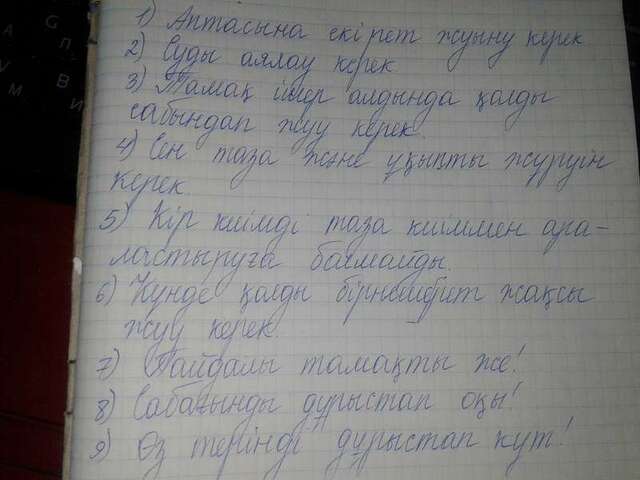 1) Аптасына екі рет жуыну керек
2) Суды аялау керек.
3) Тамақ ішер алдында қолды
сабындап жуу керек.
4) Сен таза және ұқыпты жүруің
керек.
5) Кір киімді таза киіммен ара-
ластыруға болмайды.
6) Күнде қолды бірнешерет жақсы
жуу керек.
7) Пайдалы тамақты же!
8) Сабағынды дұрыстап оқы!
9) Өз терінді дұрыстап күт!